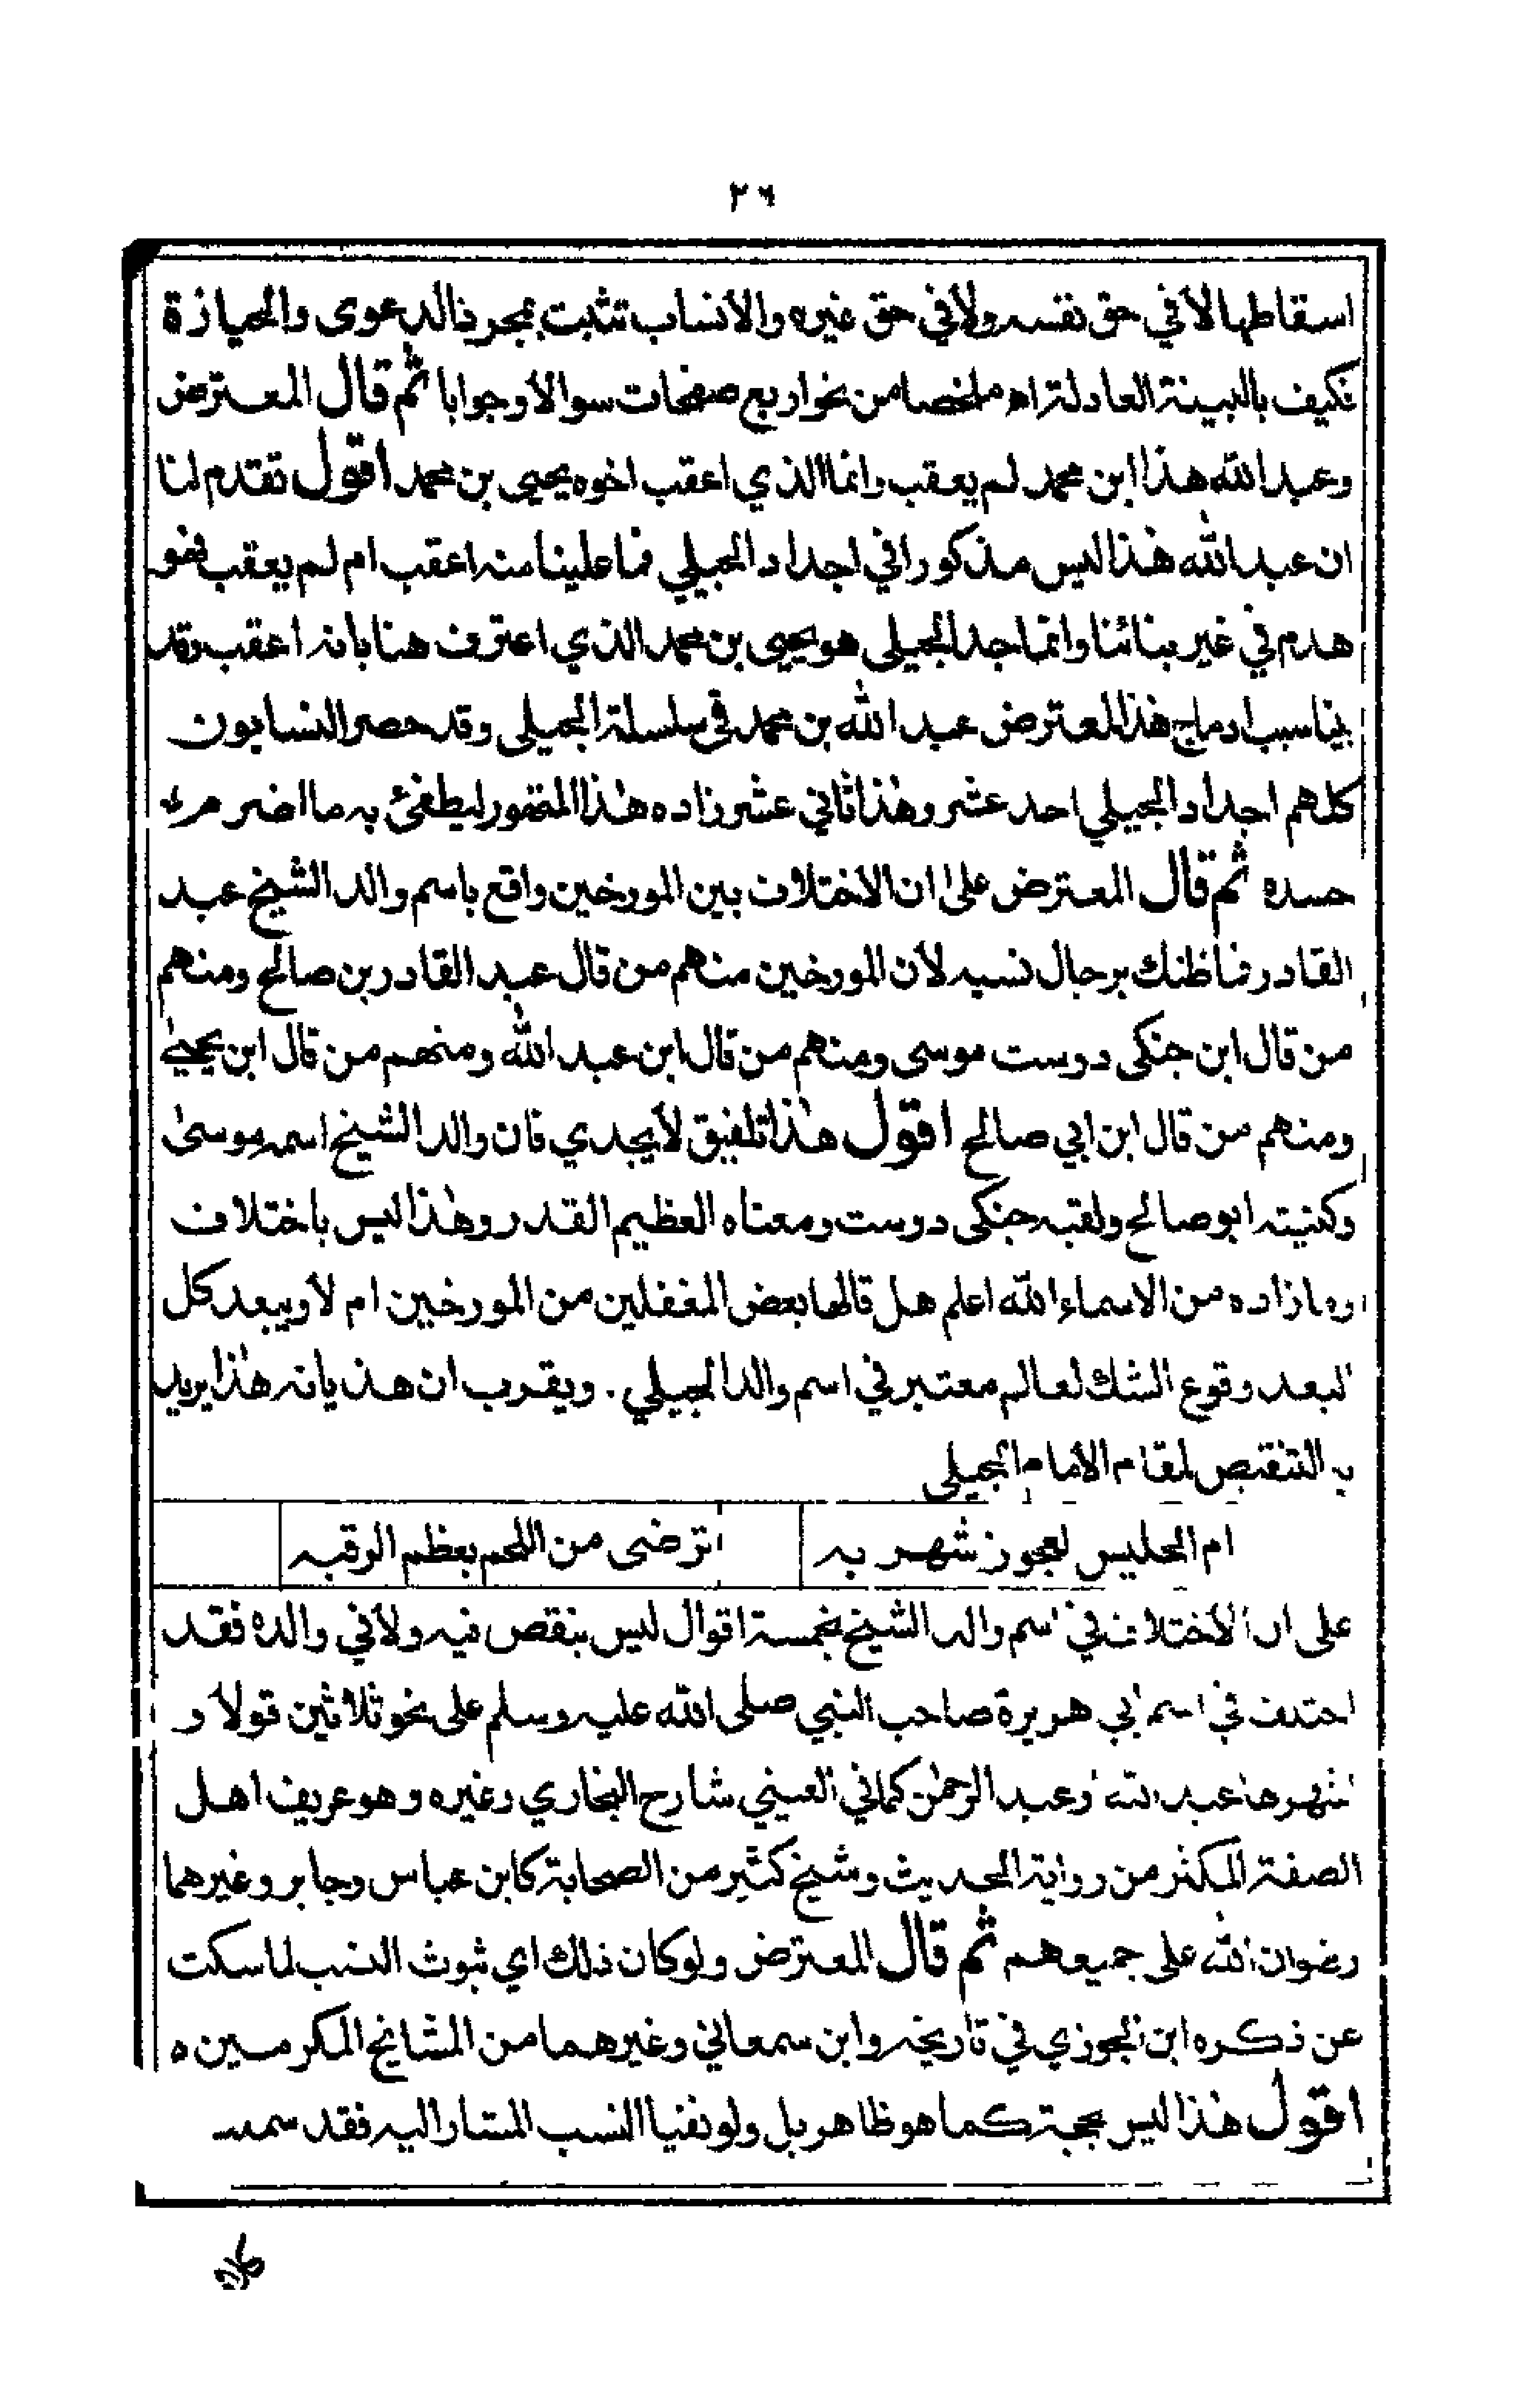 ٢٦
اسقاطها لا في حق نفسه ولا في حق غيره والانساب تثبت بمجرد الدعوى والحيازة
فكيف بالبينة العادلة اه ملخصا من نحو اربع صفحات سوالا وجوابا ثم قال المعترض
وعبد الله هذا ابن محمد لم يعقب وانما الذي اعقب اخوه يحيى بن محمد اقول تقدم لنا
ان عبد الله هذا ليس مذكورا في اجداد الجيلي فما علينا منه اعقب ام لم يعقب فهو
هدم في غير بنائنا وانما جد الجيلي هو يحيى بن محمد الذي اعترف هنا بانه اعقب وقد
بينا سبب ادماج هذا المعترض عبد الله بن محمد في سلسلة الجيلي وقد حصر النسابون
كلهم اجداد الجيلي احد عشر وهذا ثاني عشر زاده هذا المتهور ليطفئ به ما اضرمه
حسده ثم قال المعترض على ان الاختلاف بين المورخين واقع باسم والد الشيخ عبد
القادر فما ظنك برجال نسبه لان المورخين منهم من قال عبد القادر بن صالح ومنهم
من قال ابن جنكى دوست موسى ومنهم من قال ابن عبد الله ومنهم من قال ابن يحيى
ومنهم من قال ابن ابي صالح اقول هذا تلفيق لا يجدي فان والد الشيخ اسمه موسى
وكنيته ابو صالح ولقبه جنكى دوست ومعناه العظيم القدر وهذا ليس باختلاف
وما زاده من الاسماء الله اعلم هل قالها بعض المغفلين من المورخين ام لا ويبعد كل
البعد وقوع الشك لعالم معتبر في اسم والد الجيلي . ويقرب ان هذيانه هذا يريد
به التنقيص لمقام الامام الجيلي
ام الحليس لعجوز شهربه ترضى من اللحم بعظم الرقبه
على ان الاختلاف في اسم والد الشيخ بخمسة اقوال ليس بنقص فيه ولا في والده فقد
اختلف في اسم ابي هريرة صاحب النبي صلى الله عليه وسلم على نحو ثلاثين قولا و
اشهرها عبد الله او عبد الرحمن كما في العيني شارح البخاري وغيره وهو عريف اهل
الصفة المكثر من رواية الحديث وشيخ كثير من الصحابة كابن عباس وجابر وغيرهما
رضوان الله على جميعهم ثم قال المعترض ولو كان ذلك اي ثبوت النسب لما سكت
عن ذكره ابن الجوزي في تاريخه وابن سمعاني وغيرهما من المشائخ المكرمين ه
اقول هذا ليس بحجة كما هو ظاهر بل ولو نفيا النسب المشار اليه فقد